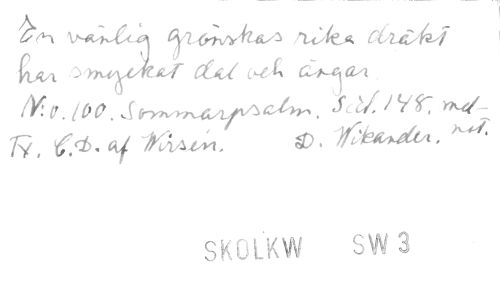 En vänlig grönskas rika dräkt
har smyckat dal och ängar.
N:o. 100. Sommarpsalm. Sid. 148. mel-
Tx. C. D. af Wirsén. D. Wikander. not.
SKOLKW SW 3